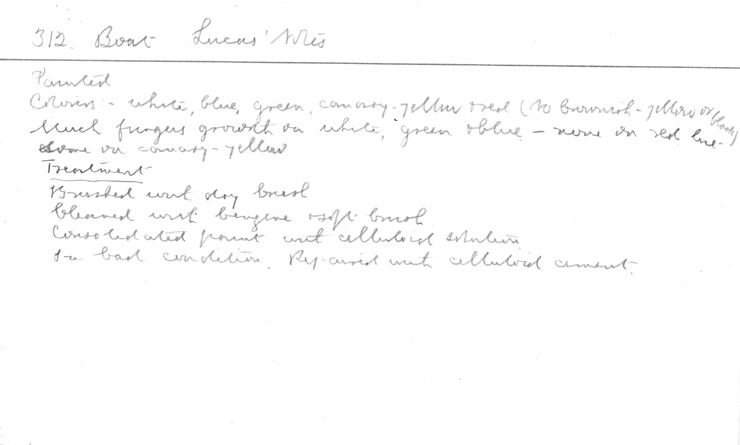 312. Boat Lucas' Notes
Painted
Colours - white, blue, green, canary-yellow & red (no brownish-yellow or black)
Much fungus growth on white, green & blue - none on red line -
some on canary-yellow
Treatment
Brushed with dry brush
Cleaned with benzine & soft brush
Consolidated paint with celluloid solution
In bad condition. Repaired with celluloid cement.